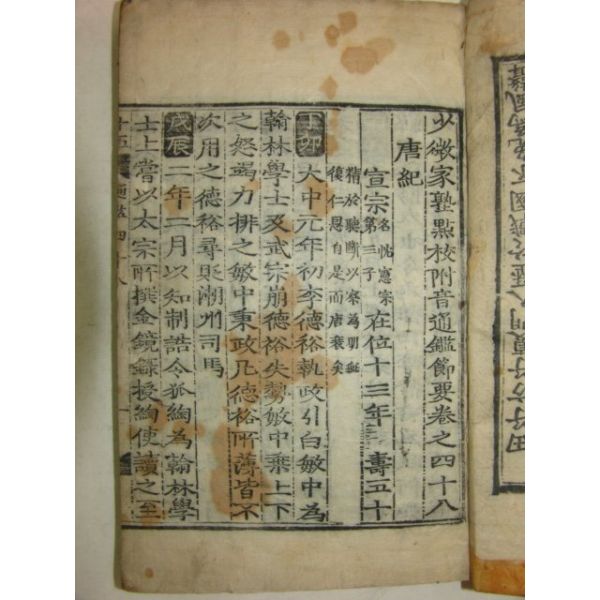 少微家塾點校附音通鑑節要卷之四十八
唐紀
宣宗名忱憲宗第三子在位十三年壽五十
精於聽斷以察爲明無
復仁恩自是而唐衰矣
丁卯大中元年初李德裕執政引白敏中為
翰林學士及武宗崩德裕失勢敏中乘上下
之怒竭力排之敏中秉政凡德裕所薄皆不
次用之德裕尋貶潮州司馬
戊辰二年二月以知制誥令狐綯為翰林學
士上嘗以太宗所撰金鏡錄授綯使讀之至